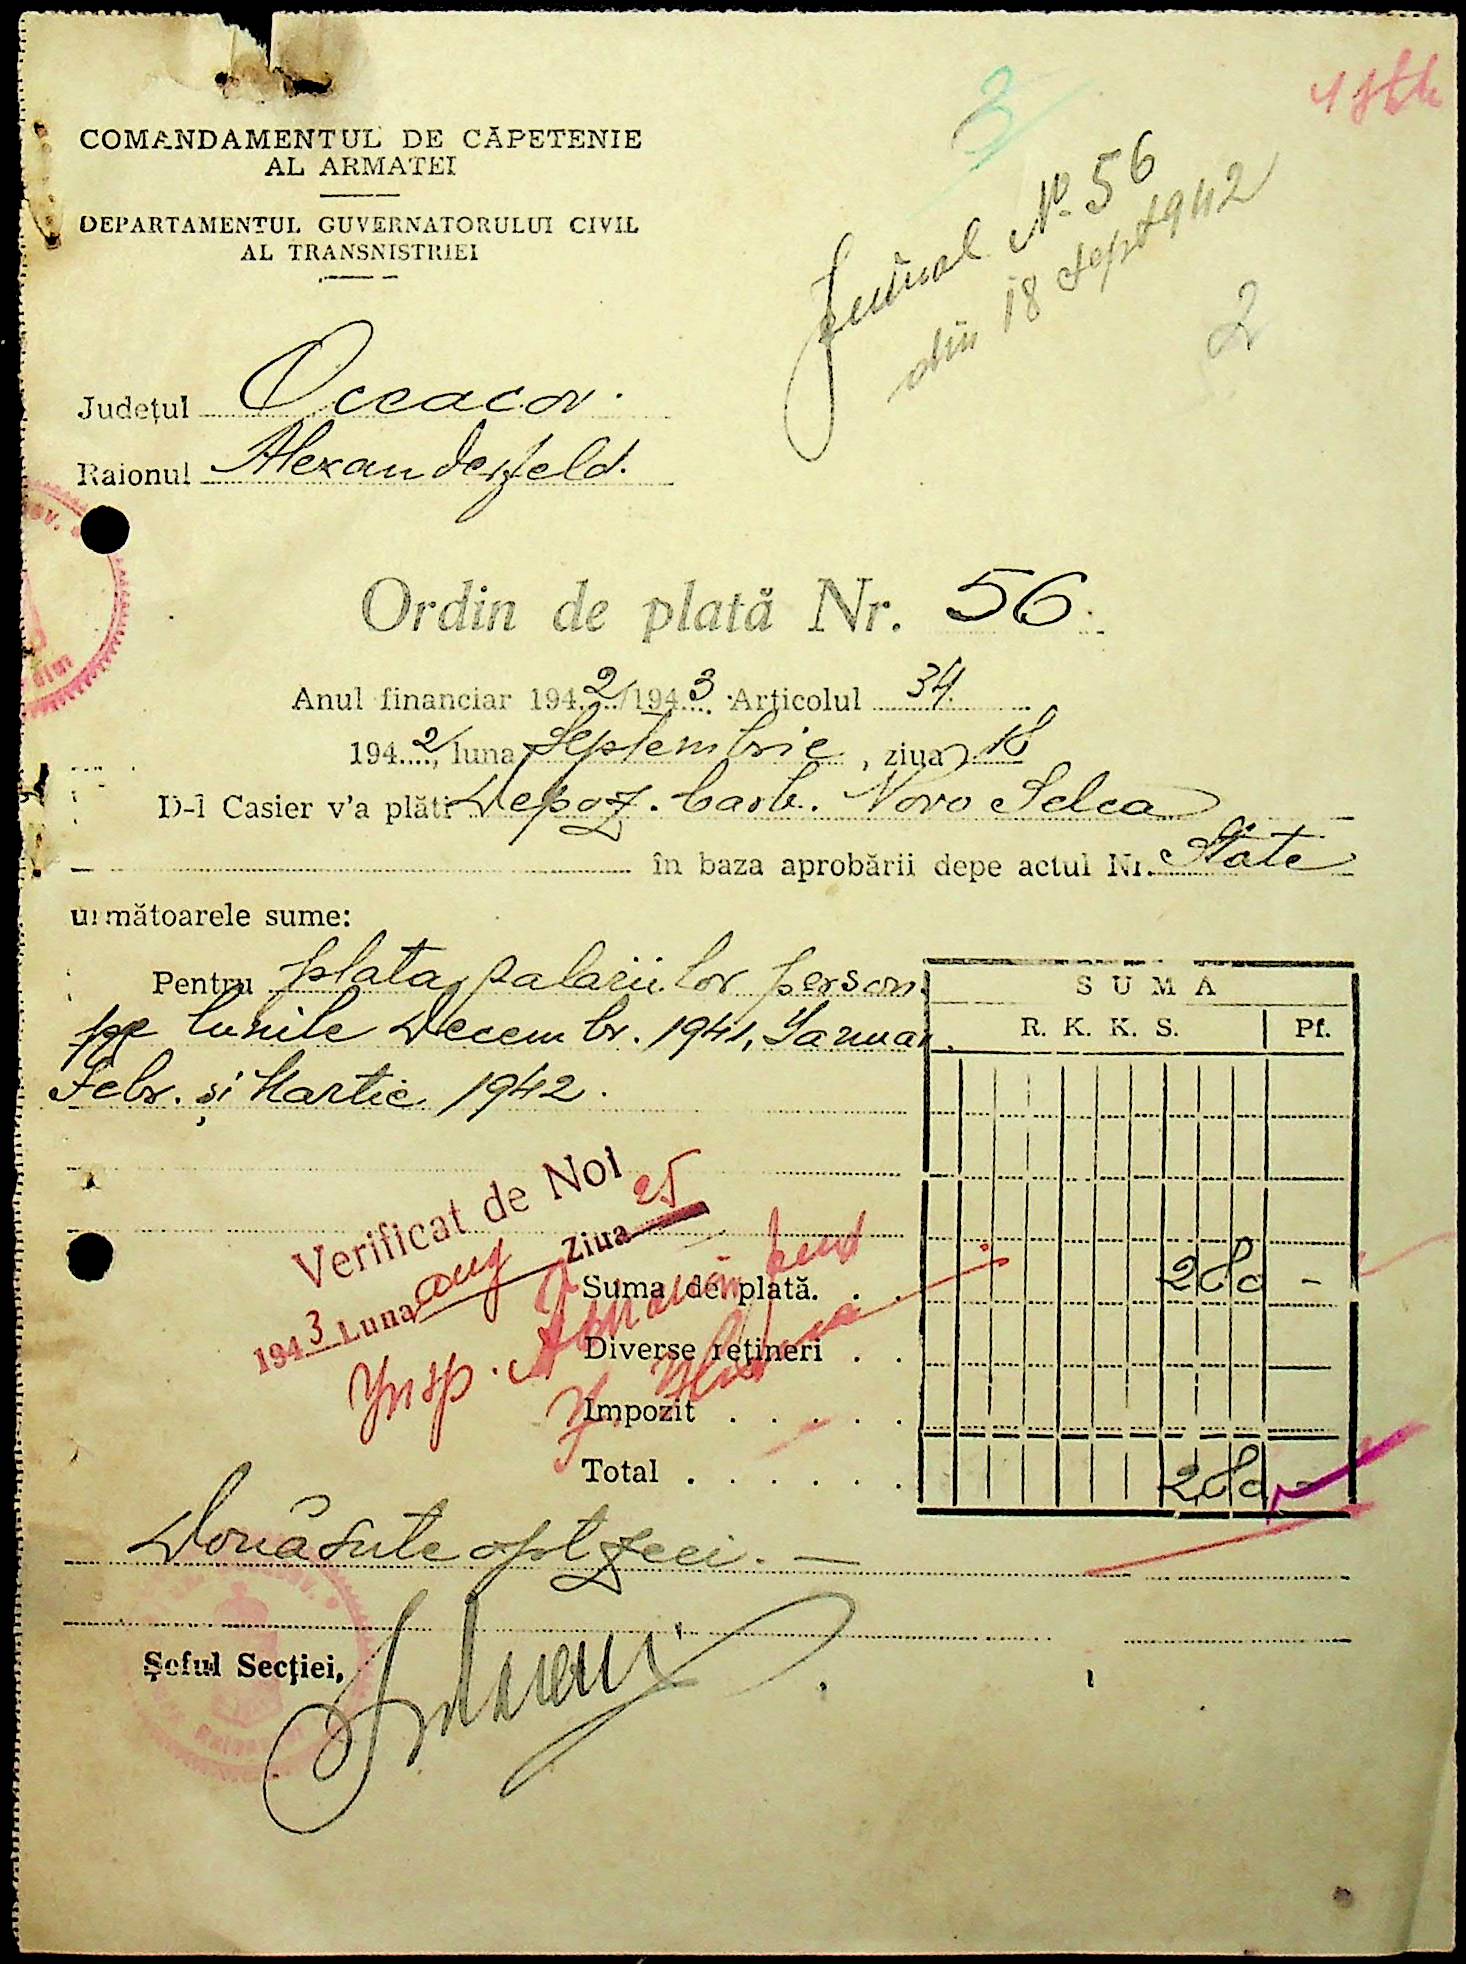 COMANDAMENTUL DE CĂPETENIE
AL ARMATEI
DEPARTAMENTUL GUVERNATORULUI CIVIL
AL TRANSNISTRIEI
3
Jurnal No. 56
din 18 Sept 1942
2
Județul Oceacov.
Raionul Alexanderfeld.
Ordin de plată Nr. 56.
Anul financiar 1942/1943 Articolul 34.
1942, luna Septembrie, ziua 18
D-l Casier v'a plăti Depoz. Carb. Novo Selca
în baza aprobării depe actul Nr. State
următoarele sume:
Pentru plata salariilor person.
pe lunile Decembr. 1941, Januar.
Febr. și Martie 1942.
SUMA
R. K. K. S. Pf.
Verificat de Noi
1943 Luna aug Ziua 25
Insp.
Suma de plată. . . 280 -
Diverse rețineri . .
Impozit . . . . .
Total . . . . . . 280 -
Două sute opt zeci. —
Șeful Secției,